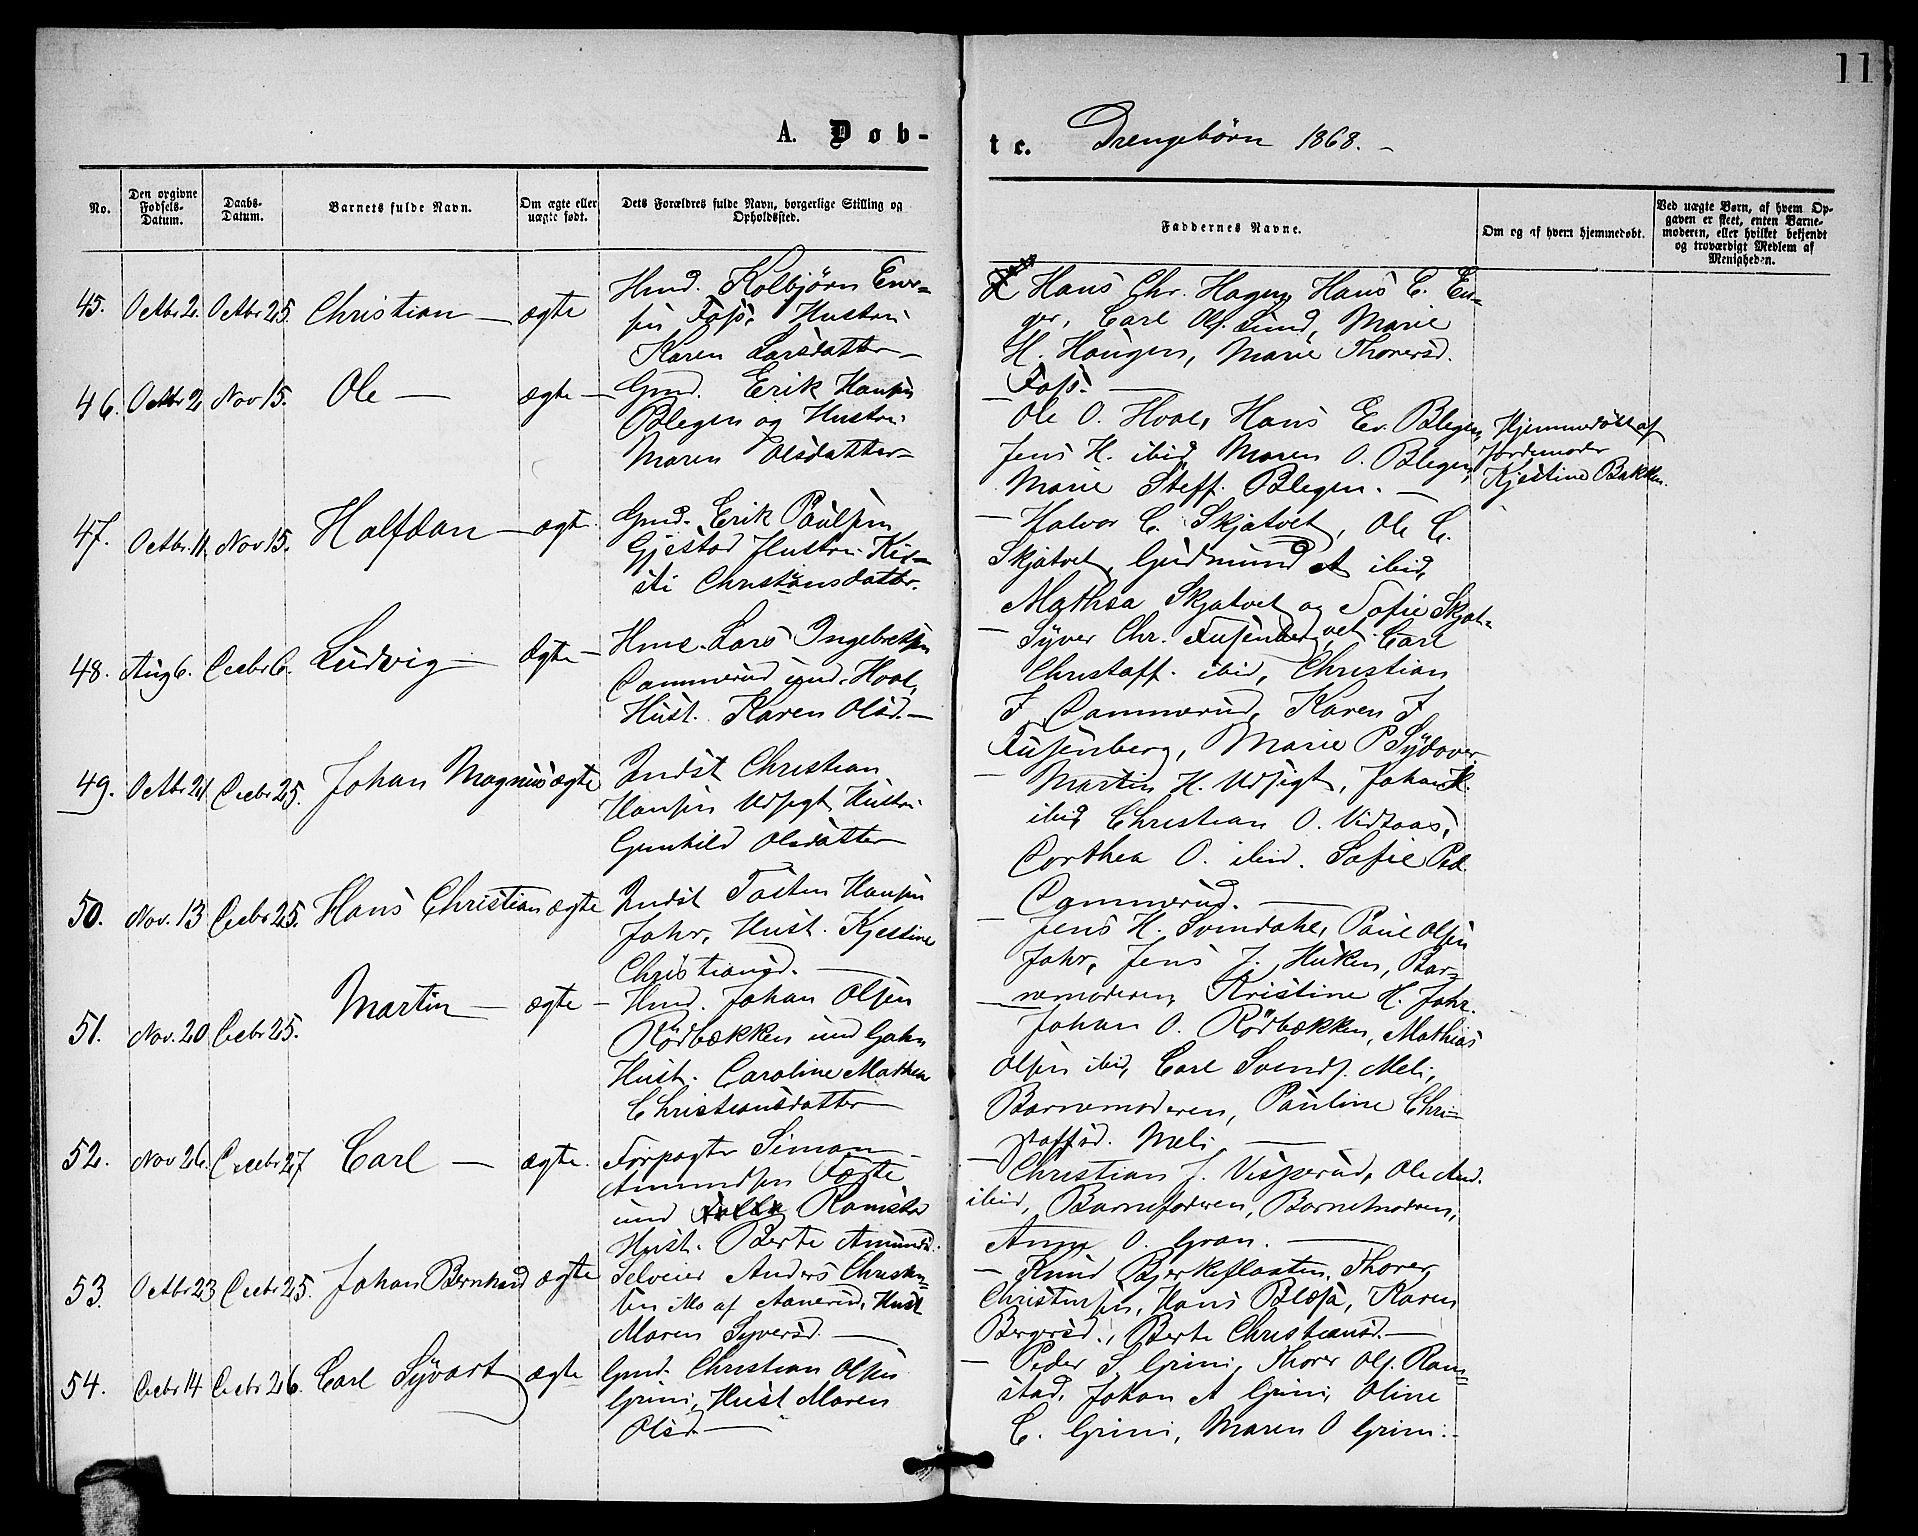 11
A. Døb-
te. Drengebørn 1868.
No.
Den opgivne Fødsels-Datum.
Daabs-Datum.
Barnets fulde Navn.
Om ægte eller uægte født.
Dets Forældres fulde Navn, borgerlige Stilling og Opholdssted.
Faddernes Navne.
Om og af hvem hjemmedøbt.
Ved uægte Børn, af hvem Opgaven er skeet, enten Barnemoderen, eller hvilket bekjendt og troværdigt Medlem af Menigheden.
45. Octbr 2. Octbr 25. Christian — ægte
Hmd. Kolbjørn Ener=
sen Foss. Hustru
Karen Larsdatter —
Hans Chr. Hagen, Hans E. En-
ger, Carl Ols. Lund, Marie
H. Haugen, Marie Thoversd.
Foss. —
46. Octbr 2 Nov 15. Ole — ægte —
Gmd. Erik Hansen
Blegen og Hustru
Maren Olsdatter —
Ole O. Hvol, Hans Er. Blegen,
Jens H. ibid, Maren O. Blegen,
Marie Steff. Blegen. —
Hjemmedøbt af
Jordemoder
Kjestine Bakken.
47. Octbr. 11. Nov 15. Halfdan — ægte.
Gmd. Erik Paulsen
Gjestad Hustru Kir=
sti Christiansdatter.
— Halvor C. Skjatvet, Ole C.
Skjatvet, Gudmund A ibid,
Mathea Skjatvet og Sofie Skjat-
vet.
48. Aug 6. Decbr 6. Ludvig — ægte —
Hmd. Lars Ingebretsen
Dammerud und. Hvol,
Hust. Karen Olsd. —
— Syver Chr. Fusenberg, Carl
Christoff. ibid, Christian
I Dammerud, Karen I
Fusenberg, Marie P Sydover
49. Octbr 21. Decbr 25. Johan Magnus ægte
Indst Christian
Hansen Udsigt, Hustru
Gunhild Olsdatter —
— Martin H. Udsigt, Johan H.
ibid, Christian O. Vidtaas,
Dorthea O. ibid. Sofie Ped.
Dammerud. —
50. Nov. 13 Decbr 25. Hans Christian ægte
Indst Tosten Hansen
Jahr, Hust. Kjestine
Christiansd. —
— Jens H. Svindahl, Paul Olsen
Jahr, Jens J. Huken, Bar=
nemoderen, Kristine H. Jahr.
51. Nov. 20 Decbr 25. Martin — ægte —
Hmd. Johan Olsen
Rødbækken und Gahn
Hust. Caroline Mathea
Christiansdatter —
— Johan O. Rødbækken, Mathias
Olsen ibid, Carl Svends. Meli,
Barnemoderen, Pauline Chri=
stoffsd. Meli —
52. Nov 26. Decbr 27 Carl — ægte.
Forpagter Simon
Amundsen Tægte
und Ramstad
Hust. Berte Amundsd.
— Christian J. Visperud, Ole And.
ibid, Barnefaderen, Barnemodren,
Anne O. Gran. —
53. Octbr 23 Decbr 25. Johan Bernhard ægte
Selveier Anders Christen=
sen Mo af Aanerud, Hust
Maren Syversd. —
— Knud Bjerkeflaaten, Thorer
Christensen, Hans Blæsa, Karen
Bergersd., Berte Christiansd. —
54. Decbr 14 Decbr 26. Carl Syvart ægte
Gmd. Christian Olsen
Grini, Hust Maren
Olsd. —
— Peder S Grini, Thorer Ols. Ram=
stad, Johan A Grini, Oline
C. Grini, Maren O Grini. —